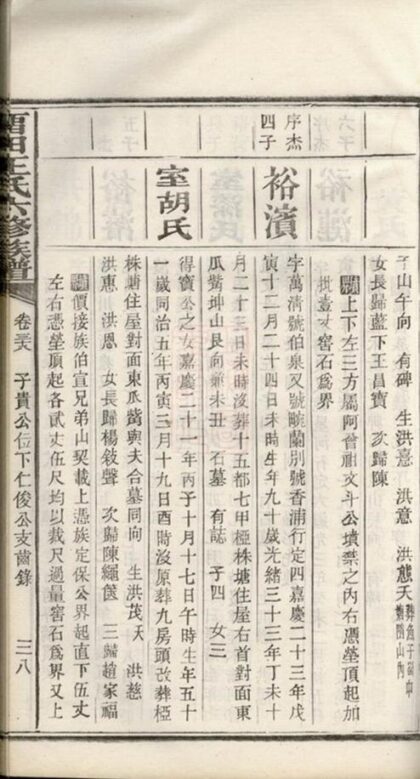 子山午向　有碑　生洪意　洪意　洪慈夭
女長歸藍下王昌寶　次歸陳
上下左三方屬阿曾祖文斗公墳禁之內右憑塋頂起加
批壹丈窖石爲界
序杰四子
裕濱
字萬清號伯泉又號畹蘭別號香浦行定四嘉慶二十三年戊
寅十二月二十四日未時生年九十歲光緒三十三年丁未十
月二十三日未時沒葬十五都七甲極株塘住屋右首對面東
瓜觜坤山艮向兼未丑　石墓　有誌　子四　女三
室胡氏
得寶公之女嘉慶二十一年丙子十月十七日午時生年五十
一歲同治五年丙寅三月十九日酉時沒原葬九房頭改葬極
株塘住屋對面東瓜觜與夫合墓同向　生洪茂夭　洪慈
洪惠　洪恩　女長歸楊敍聲　次歸陳繩篋　三歸趙家福
價接族伯宣兄弟山契載上憑族定保公界起直下伍丈
左右憑塋頂起各貳丈伍尺均以裁尺過量窖石爲界又上
王氏六修族譜
卷
子貴公位下仁俊公支齒錄
三八